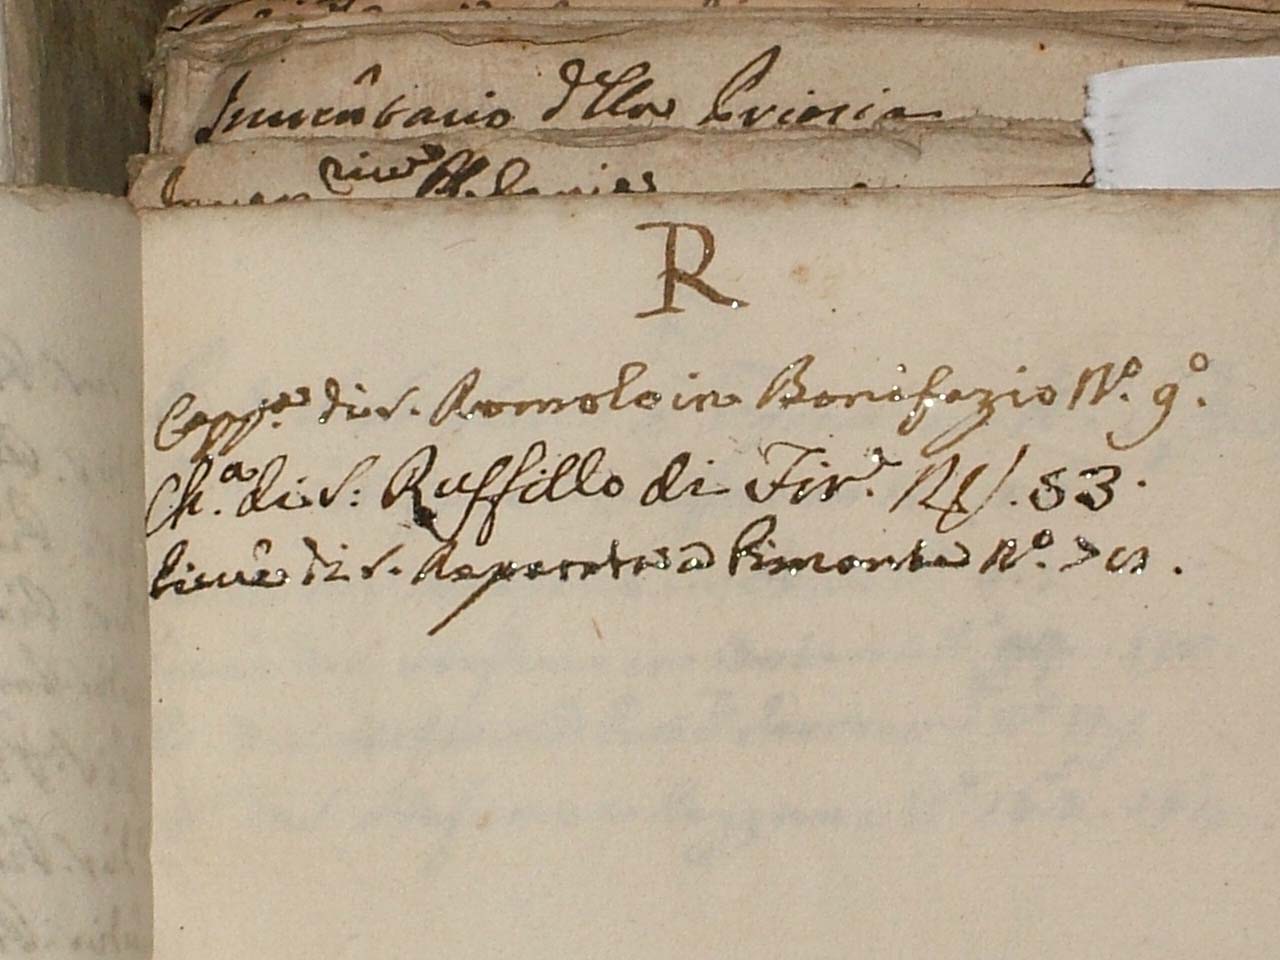 Inuentario della Prioria
R
Capp.ª di S. Romolo in Bonifazio Nº. 9º.
Ch.ª di S. Ruffillo di Fir.ᵉ Nº. 53.
Pieue di S. Reparata a Pimonte Nº.